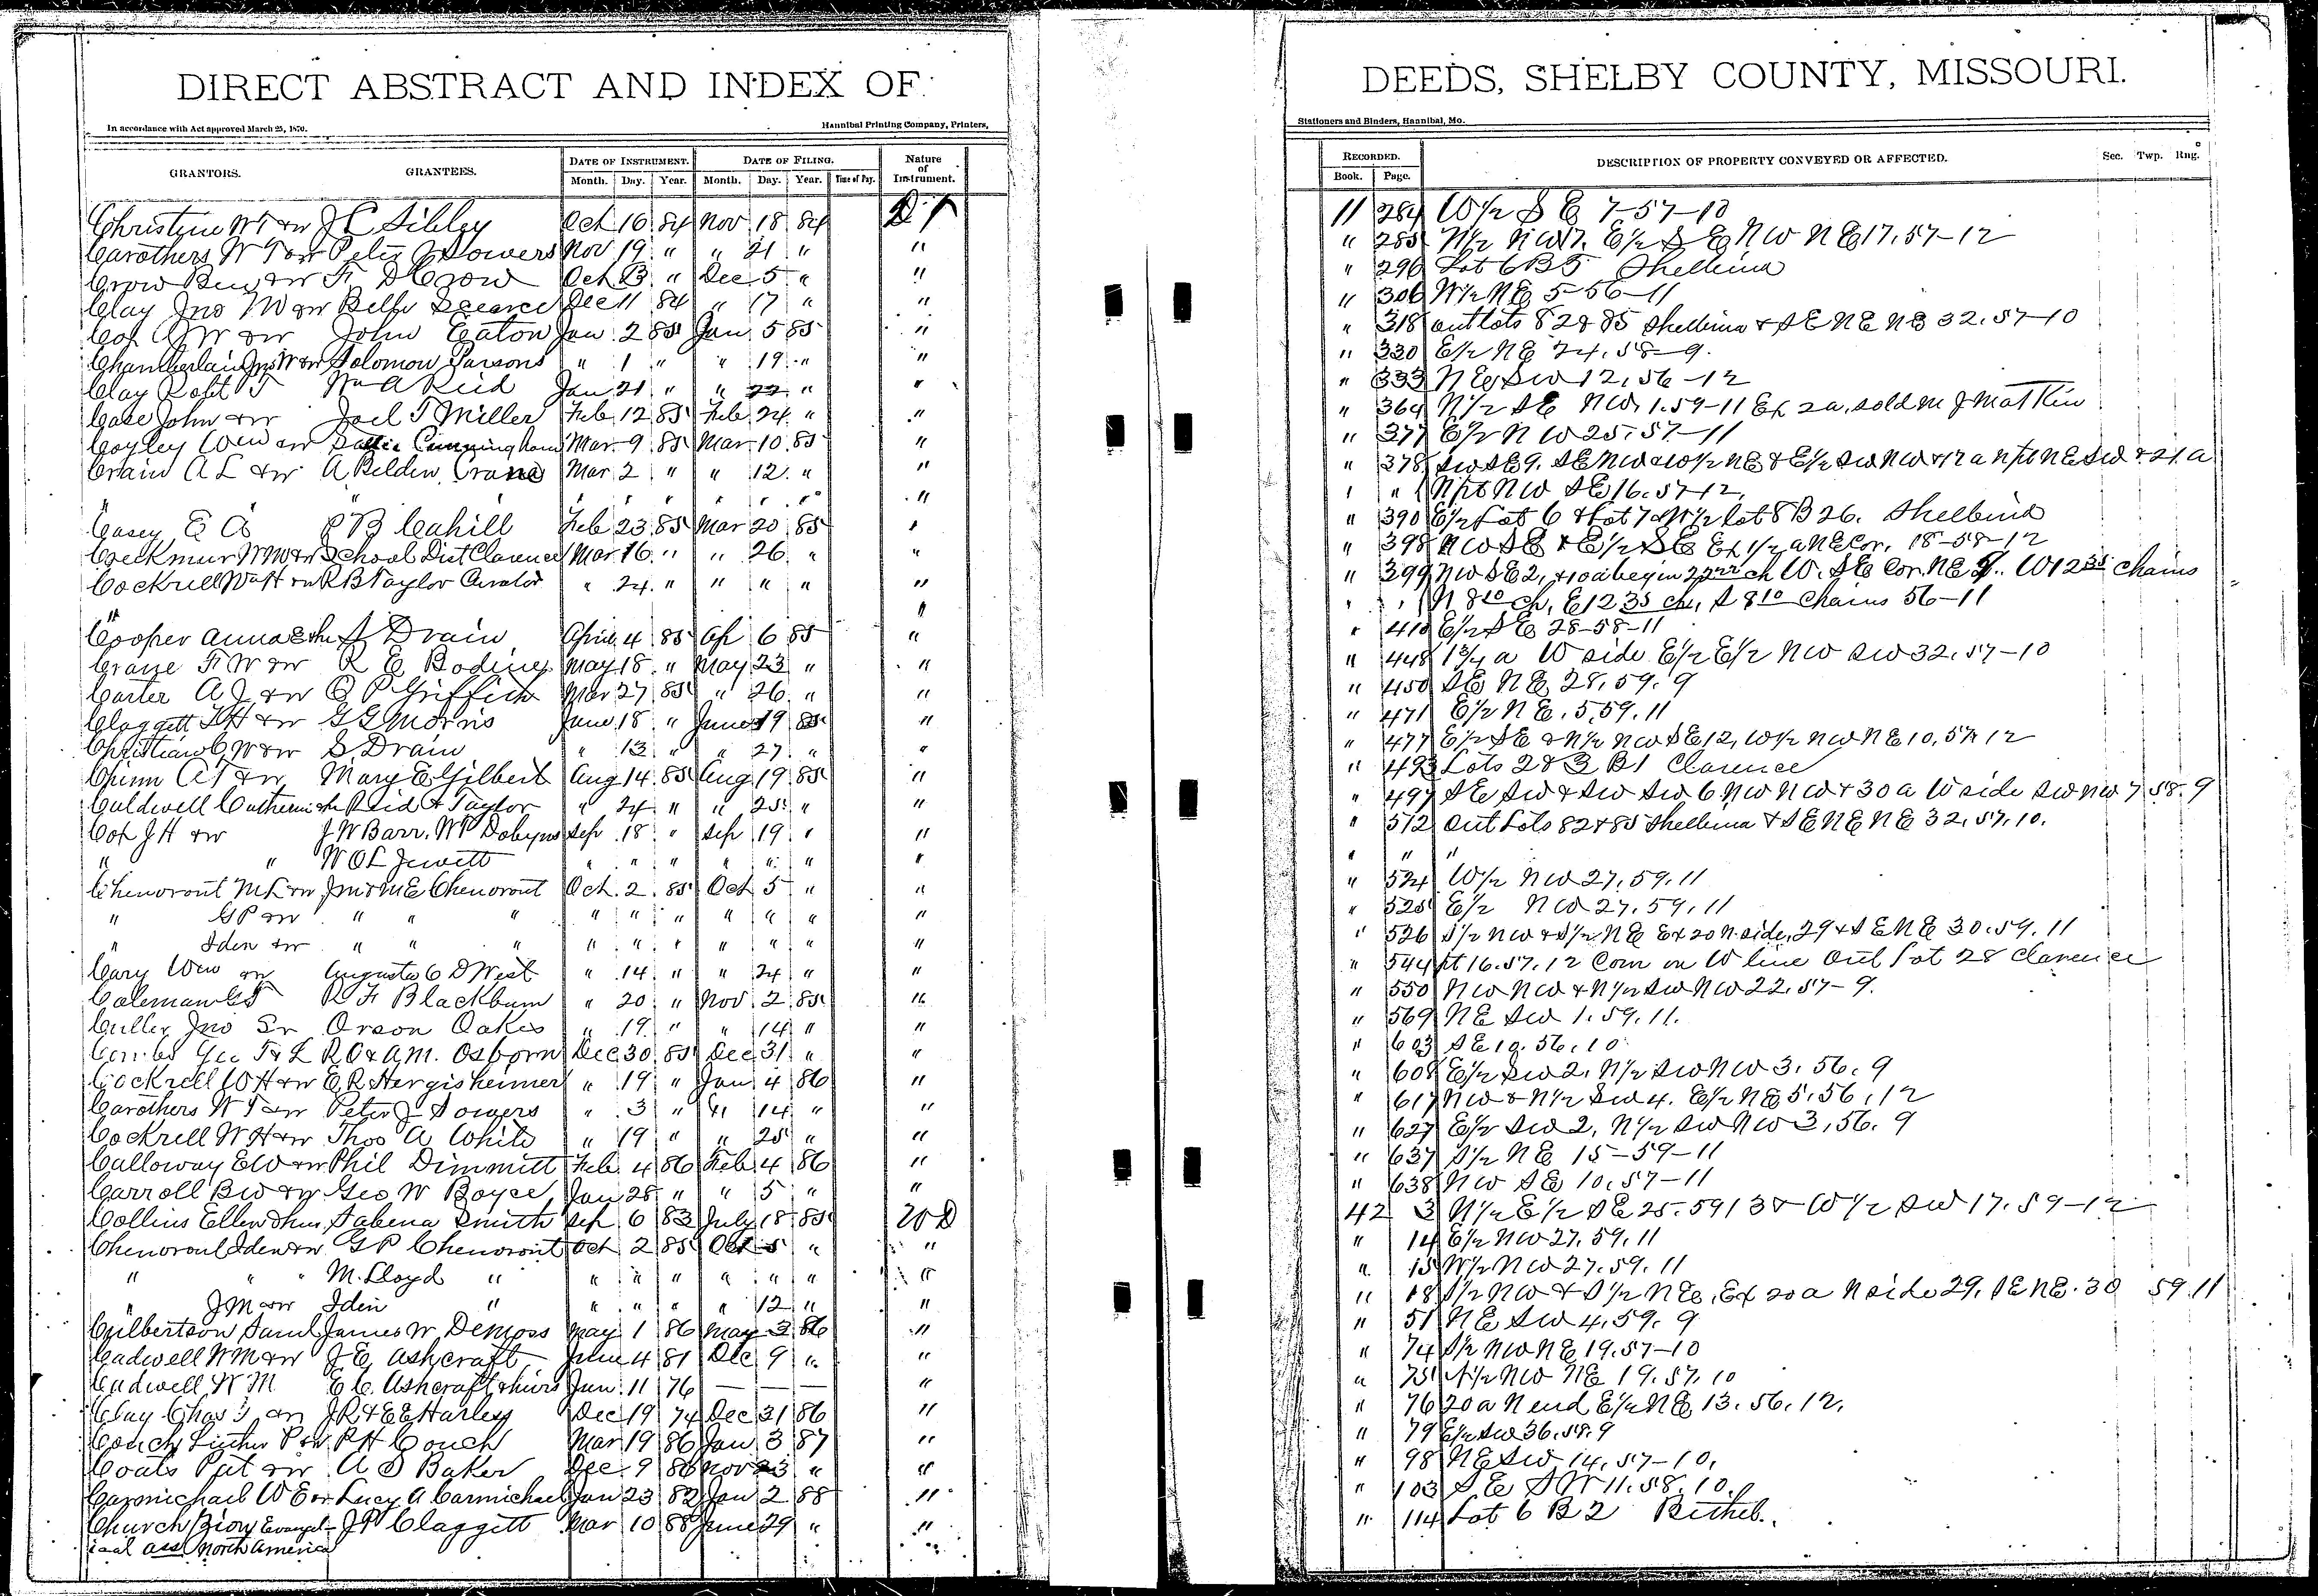 DIRECT ABSTRACT AND INDEX OF DEEDS, SHELBY COUNTY, MISSOURI.
In accordance with Act approved March 25, 1870. Hannibal Printing Company, Printers, Stationers and Binders, Hannibal, Mo.
GRANTORS. GRANTEES. DATE OF INSTRUMENT. DATE OF FILING. Nature of Instrument. RECORDED. DESCRIPTION OF PROPERTY CONVEYED OR AFFECTED. Sec. Twp. Rng.
Month. Day. Year. Month. Day. Year. Time of Day. Book. Page.
Christine W T & w J C Sibley Oct 16 84 Nov 18 84 D T 11 284 W 1/2 S E 7-57-10
Carothers W T & w Peter J Sowers Nov 19 " " 21 " " " 285 N 1/2 N W 17, E 1/2 S E N W N E 17. 57-12
Crow Ben & w F D Crow Oct 13 " Dec 5 " " " 296 Lot 6 B 5 Shelbina
Clay Jno M & w Belle Dec 11 84 " 17 " " " 306 W 1/2 N E 5-56-11
Cox J W & w John Eaton Jan 2 85 Jan 5 85 " " 318 outlots 82 & 85 Shelbina & S E N E N E 32. 57-10
Chamberlain Jno W & w Solomon Parsons " 1 " " 19 " " " 330 E 1/2 N E 24. 58-9.
Clay Robt T Wm A Reid Jan 21 " " 22 " " " 333 N E S W 12. 56-12
Case John & w Joel T Miller Feb 12 85 Feb 24 " " " 364 N 1/2 S E N W 1. 59-11 Ex 2 a. sold m J Matkin
Coyley Wm & w Sallie Cunningham Mar 9 85 Mar 10 85 " " 377 E 1/2 N W 25. 57-11
Crain A L & w A Belden Crane Mar 2 " " 12 " " " 378 S W S E 9. S E N W & W 1/2 N E & E 1/2 S W N W & 12 a N pt N E S W & 21 a
" " " " " " " " " " " N pt N W S E 16. 57-12.
Casey E A P B Cahill Feb 23 85 Mar 20 85 " " 390 E 1/2 Lot 6 & Lot 7 & W 1/2 lot 8 B 26. Shelbina
Creekmur W M & w School Dist Clarence Mar 16 " " 26 " " " 398 N W S E & E 1/2 S E Ex 1/2 a N E Cor. 18-58-12
Cockrell W H & w R B Taylor Curator " 24 " " " " " " 399 N W S E 2, & 10 a begin ch W. S E Cor. N E 9. W 12 35 chains
" " " " N 8 10 ch, E 12 35 ch, S 8 10 chains 56-11
Cooper Anna E & hu S Drain April 4 85 Ap 6 85 " " 410 E 1/2 S E 28-58-11
Crane F W & w R E Bodine May 18 " May 23 " " " 448 1 3/4 a W side E 1/2 E 1/2 N W S W 32. 57-10
Carter A J & w O P Griffith Mar 27 85 " 26 " " " 450 S E N E 28. 59. 9
Claggett T H & w G G Morris June 18 " June 19 85 " " 471 E 1/2 N E. 5, 59. 11
Christian C W & w S Drain " 13 " " 27 " " " 477 E 1/2 S E & N 1/2 N W S E 12, W 1/2 N W N E 10, 57 12
Chinn C T & w Mary E Gilbert Aug 14 85 Aug 19 85 " " 493 Lots 2 & 3 B 1 Clarence
Caldwell Catherine & hu Reid & Taylor " 24 " " 25 " " " 497 S E S W & S W S W 6 N W N W & 30 a W side S W N W 7 58. 9
Cox J H & w J W Barr. W P Dobyns Sep 18 " Sep 19 " " " 512 out Lots 82 & 85 Shelbina & S E N E N E 32. 57. 10.
" " W O L Jewett " " " " " " " " " "
Chenoront M L & w Jm & M E Chenoront Oct 2 85 Oct 5 " " " 524 W 1/2 N W 27. 59. 11
" G P & w " " " " " " " " " " " 525 E 1/2 N W 27. 59. 11
" Iden & w " " " " " " " " " " " 526 S 1/2 N W & S 1/2 N E Ex 20 N. side, 29 & S E N E 30. 59. 11
Cary Wm & w Augusta C D West " 14 " " 24 " " " 544 pt 16. 57. 12 Com on W line Out Lot 28 Clarence
Coleman G T R F Blackburn " 20 " Nov 2 85 " " 550 N W N W & N 1/2 S W N W 22. 57-9.
Culler Jno Sr Orson Oakes " 19 " " 14 " " " 569 N E S W 1. 59. 11.
Combs Geo T & L R O & A M. Osborn Dec 30 85 Dec 31 " " " 603 S E 10. 56. 10
Cockrell W H & w E R Hergisheimer " 19 " Jan 4 86 " " 608 E 1/2 S W 2, N 1/2 S W N W 3. 56. 9
Carothers W T & w Peter J Sowers " 3 " " 14 " " " 617 N W & N 1/2 S W 4. E 1/2 N E 5. 56. 12
Cockrell W H & w Thos A White " 19 " " 25 " " " 627 E 1/2 S W 2, N 1/2 S W N W 3, 56. 9
Calloway E W & w Phil Dimmitt Feb 4 86 Feb 4 86 " " 637 S 1/2 N E 15-59-11
Carroll B W & w Geo W Boyce Jan 28 " " 5 " " " 638 N W S E 10. 57-11
Collins Ellen & hus Sabena Smith Sep 6 83 July 18 85 W D 42 3 N 1/2 E 1/2 S E 25. 59 13 & W 1/2 S W 17. 59-12
Chenoront Iden & w G P Chenoront Oct 2 85 Oct 5 " " " 14 E 1/2 N W 27. 59. 11
" " " M. Lloyd " " " " " " " " " 15 W 1/2 N W 27. 59. 11
" J M & w Iden " " " " " 12 " " " 18 S 1/2 N W & S 1/2 N E, Ex 20 a N side 29. S E N E. 30 59 11
Culbertson Saml James W. Demoss May 1 86 May 3 86 " " 51 N E S W 4. 59. 9
Cadwell W M & w J E Ashcraft June 4 81 Dec 9 " " " 74 S 1/2 N W N E 19. 57-10
Cadwell W M E C. Ashcraft & heirs Jan 11 76 — — — " " 75 N 1/2 N W N E 19. 57. 10
Clay Chas T & w J R & E E Harley Dec 19 74 Dec 31 86 " " 76 20 a N end E 1/2 N E 13. 56. 12.
Couch Luther P & w R H Couch Mar 19 86 Jan 3 87 " " 79 E 1/2 S W 36. 58. 9
Coats Pat & w A S Baker Dec 9 86 Nov 23 " " " 98 N E S W 14. 57-10.
Carmichael W E & w Lucy A Carmichael Jan 23 82 Jan 2 88 " " 103 S E S W 11. 58. 10.
Church Ziony Evangel- J P Claggett Mar 10 88 June 29 " " " 114 Lot 6 B 2 Bethel.
ical ass North America